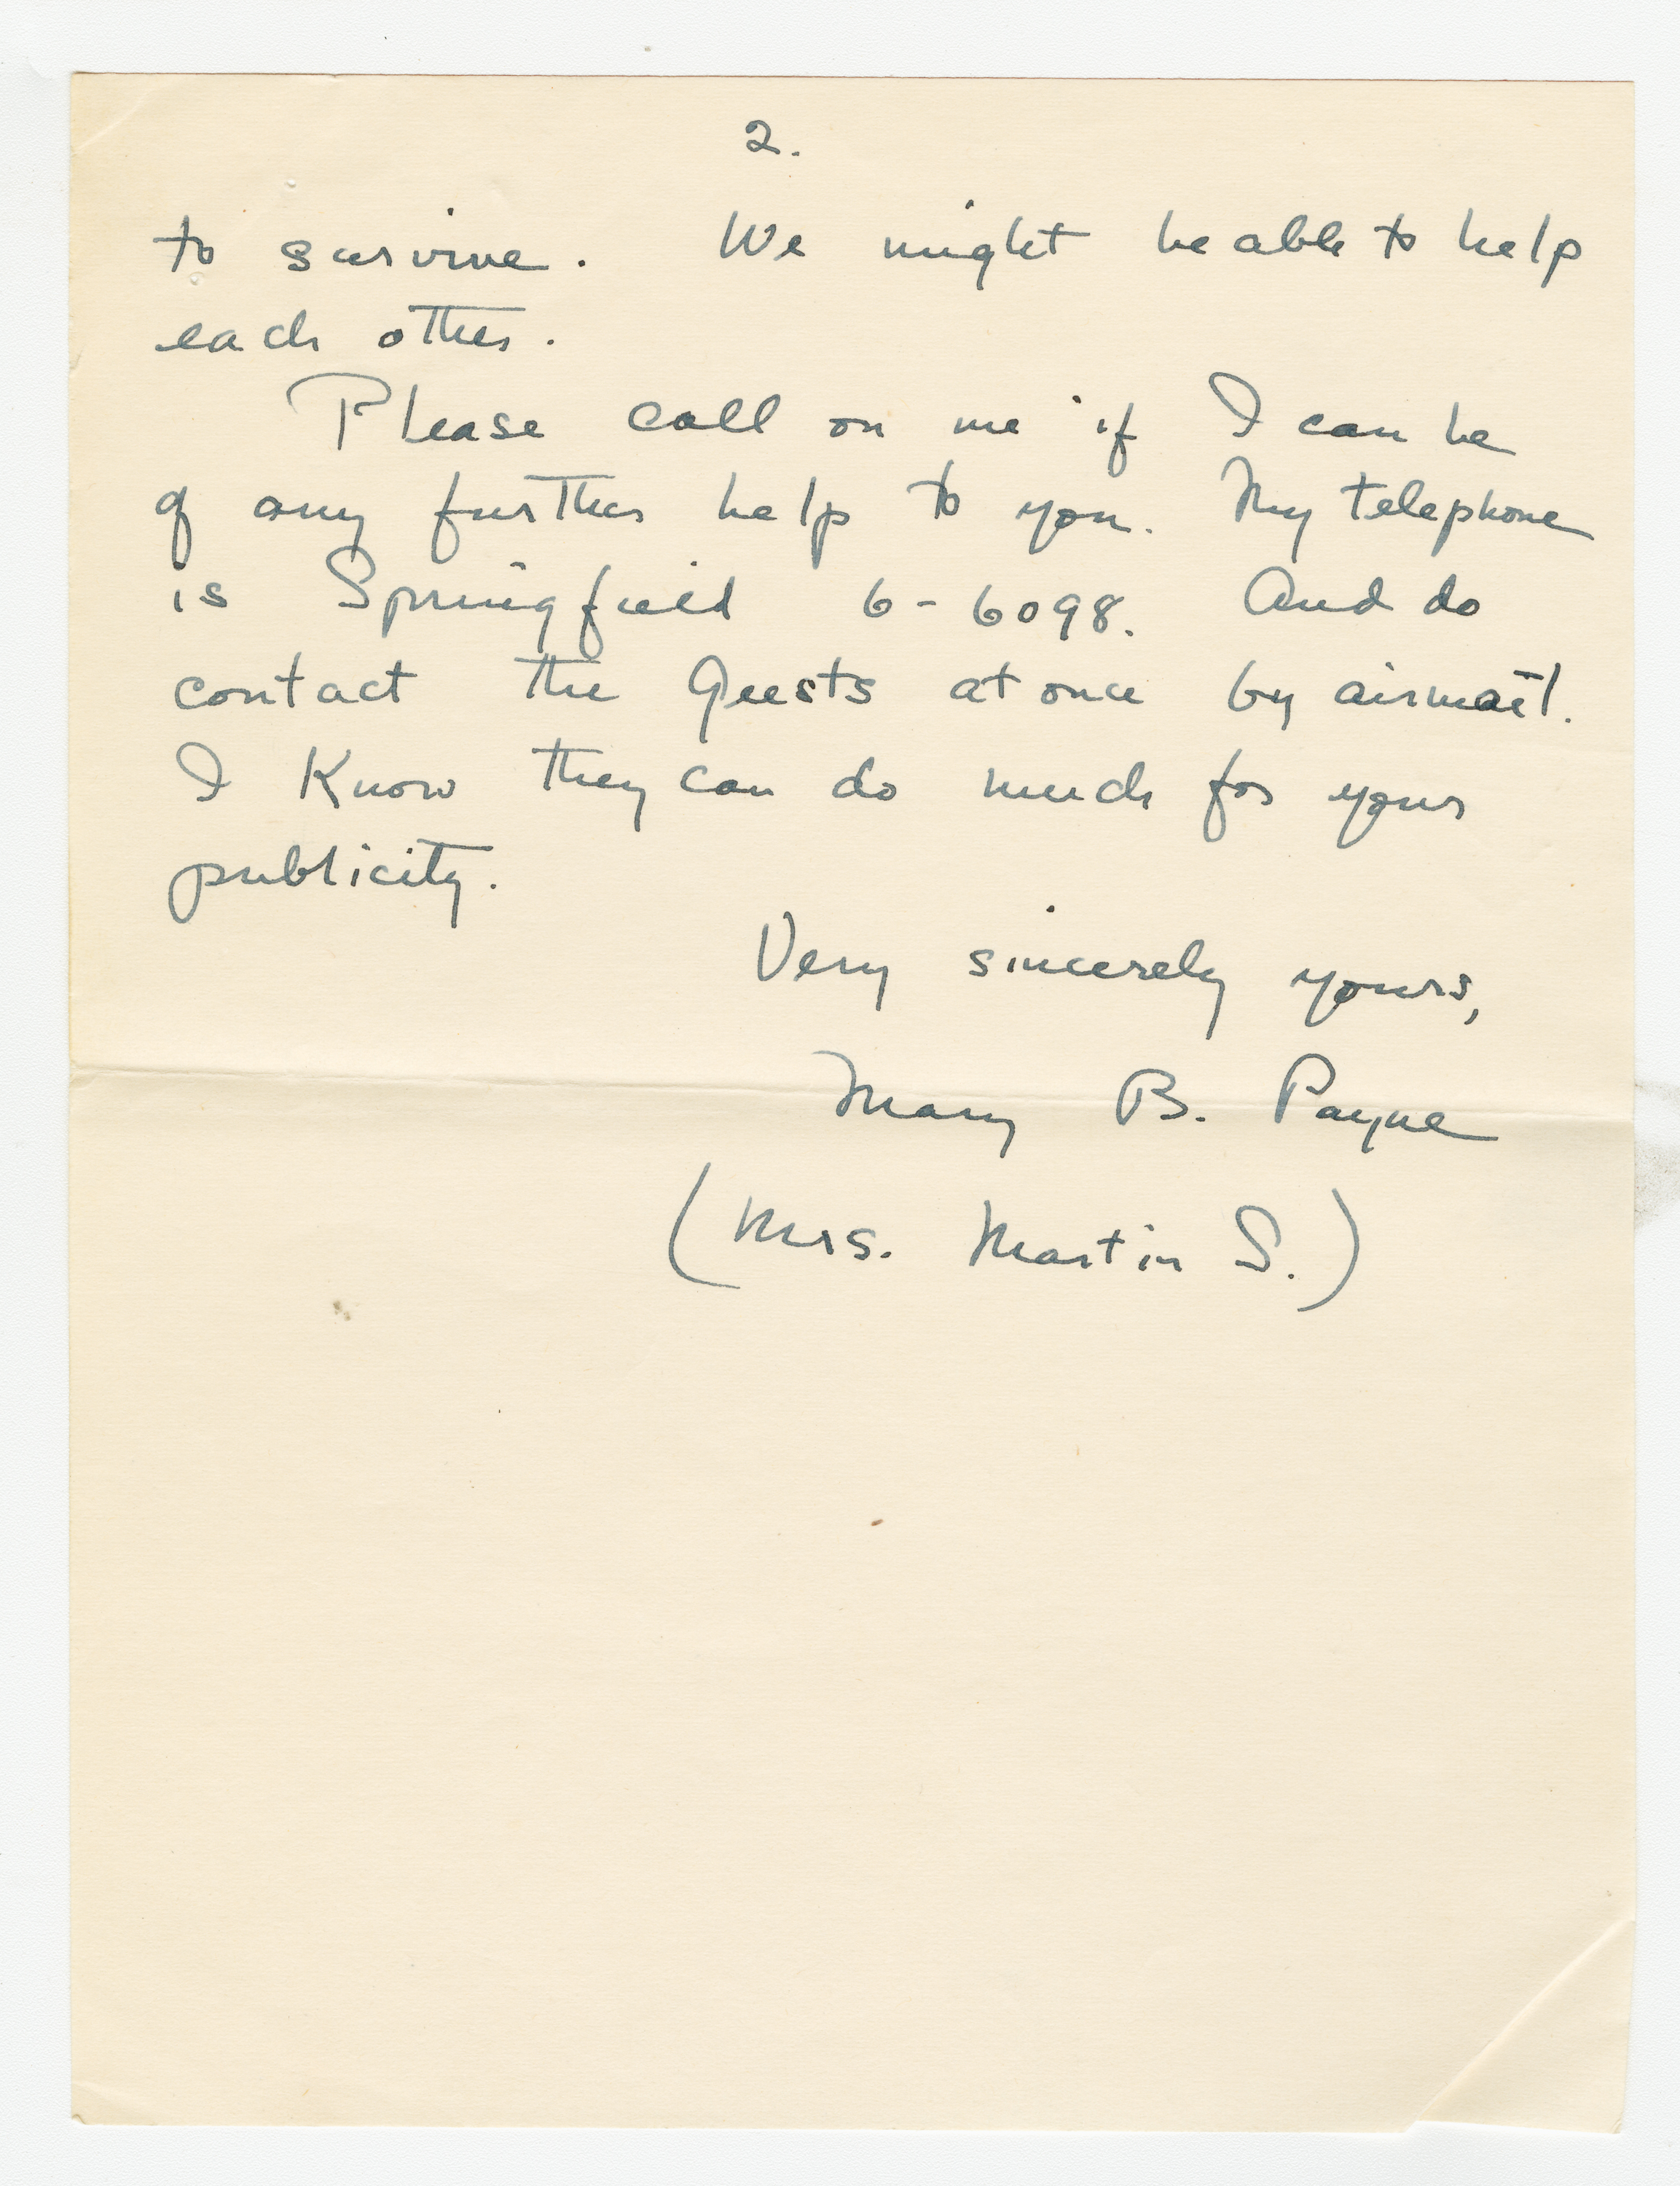 2.
to survive. We might be able to help
each other.
Please call on me if I can be
of any further help to you. My telephone
is Springfield 6-6098. And do
contact the Geests at once by airmail.
I know they can do much for your
publicity.
Very sincerely yours,
Mary B. Payne
(Mrs. Martin S.)